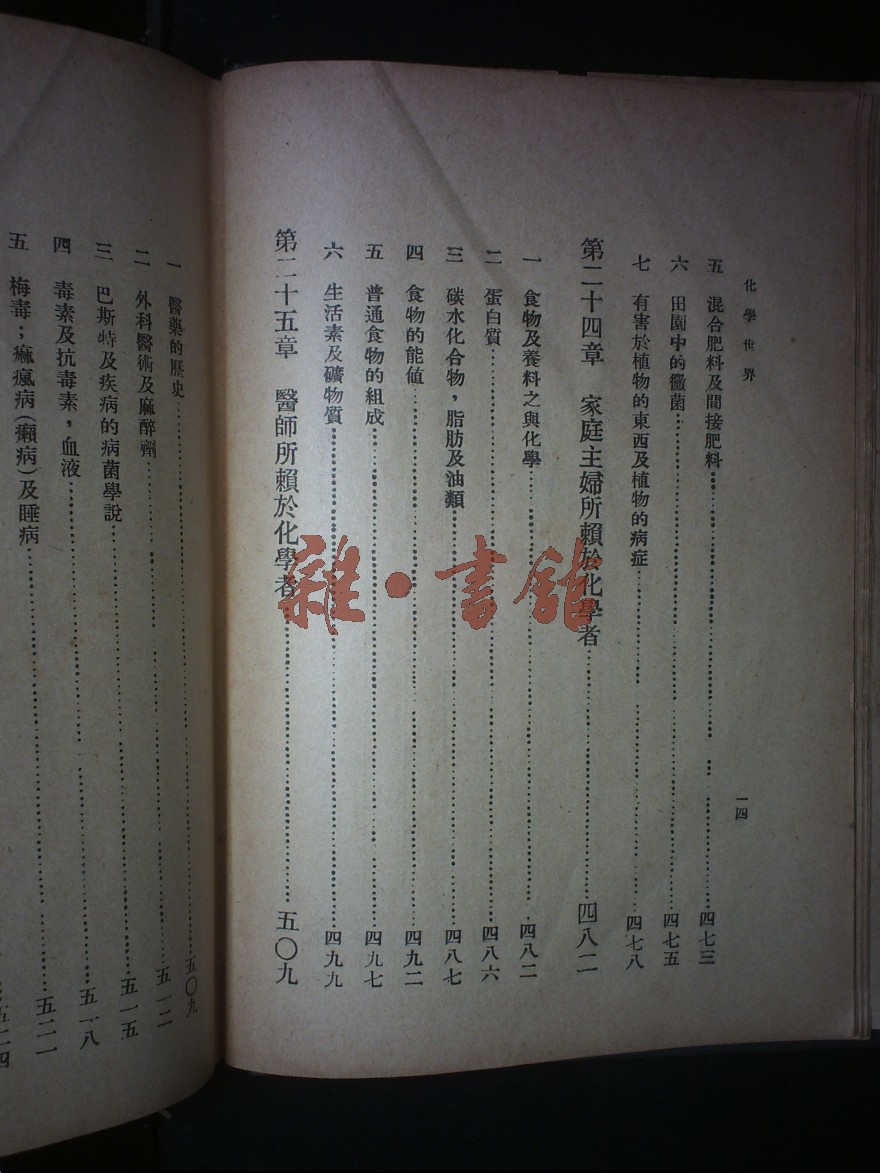 化學世界
一四
五 混合肥料及間接肥料……四七三
六 田園中的黴菌……四七五
七 有害於植物的東西及植物的病症……四七八
第二十四章 家庭主婦所賴於化學者……四八二
一 食物及養料之與化學……四八二
二 蛋白質……四八六
三 碳水化合物，脂肪及油類……四八七
四 食物的能値……四九二
五 普通食物的組成……四九七
六 生活素及礦物質……四九九
第二十五章 醫師所賴於化學者……五〇九
一 醫藥的歷史……五〇九
二 外科醫術及麻醉劑……五一二
三 巴斯特及疾病的病菌學說……五一五
四 毒素及抗毒素，血液……五一八
五 梅毒；痲瘋病（癩病）及睡病……五二一
五二四
雜·書館